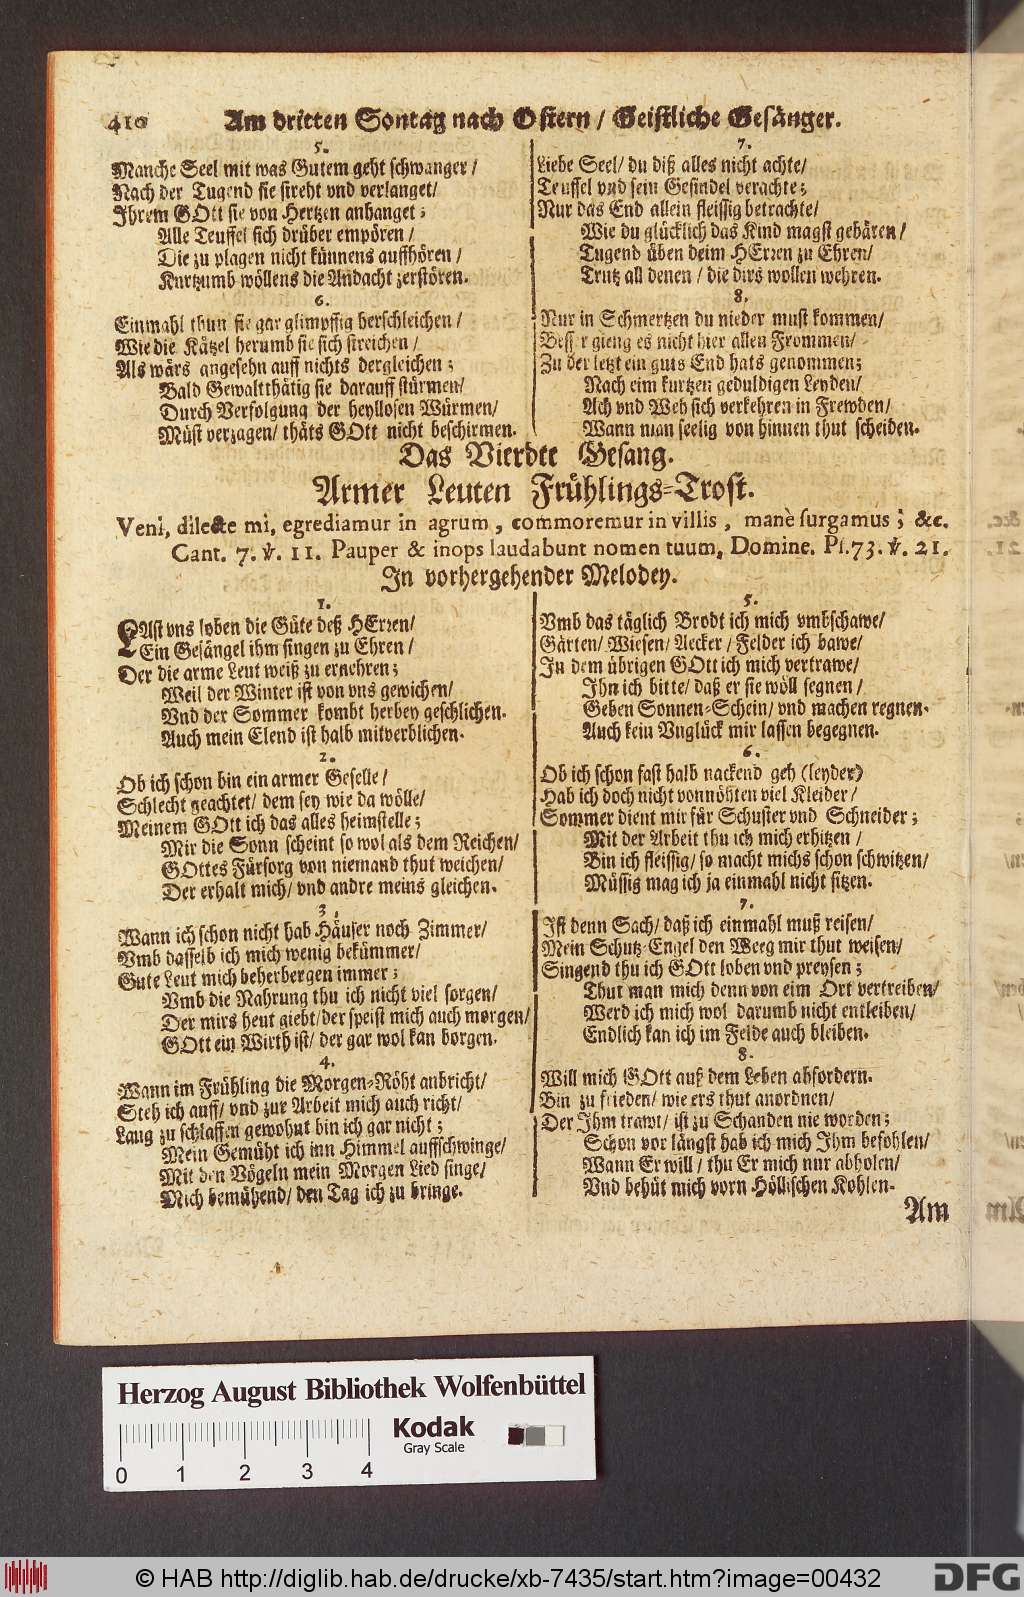 410 Am dritten Sontag nach Ostern / Geistliche Gesänger.
5.
Manche Seel mit was Gutem geht schwanger /
Nach der Tugend sie strebt vnd verlanget/
Ihrem GOtt sie von Hertzen anhanget;
Alle Teuffel sich drüber empören /
Die zu plagen nicht künnens auffhören /
Kurtzumb wöllens die Andacht zerstören.
6.
Einmahl thun sie gar glimpffig herschleichen /
Wie die Kätzel herumb sie sich streichen /
Als wärs angesehn auff nichts dergleichen;
Bald Gewaltthätig sie darauff stürmen/
Durch Verfolgung der heyllosen Würmen/
Müst verzagen/ thäts GOtt nicht beschirmen.
7.
Liebe Seel/ du diß alles nicht achte/
Teuffel vnd sein Gesindel verachte;
Nur das End allein fleissig betrachte/
Wie du glücklich das Kind magst gebären /
Tugend üben deim HErren zu Ehren/
Trutz all denen / die dirs wollen wehren.
8.
Nur in Schmertzen du nieder must kommen/
Besser gieng es nicht hier allen Frommen/
Zu der letzt ein guts End hats genommen;
Nach eim kurtzen geduldigen Leyden/
Ach vnd Weh sich verkehren in Frewden/
Wann man seelig von hinnen thut scheiden.
Das Vierdte Gesang.
Armer Leuten Frühlings-Trost.
Veni, dilecte mi, egrediamur in agrum, commoremur in villis, manè surgamus; &c.
Cant. 7. v. 11. Pauper & inops laudabunt nomen tuum, Domine. Ps. 73. v. 21.
In vorhergehender Melodey.
1.
LAst vns loben die Güte deß HErren/
Ein Gesängel ihm singen zu Ehren /
Der die arme Leut weiß zu ernehren;
Weil der Winter ist von vns gewichen/
Vnd der Sommer kombt herbey geschlichen.
Auch mein Elend ist halb mitverblichen.
2.
Ob ich schon bin ein armer Geselle /
Schlecht geachtet/ dem sey wie da wölle/
Meinem GOtt ich das alles heimstelle;
Mir die Sonn scheint so wol als dem Reichen/
GOttes Fürsorg von niemand thut weichen/
Der erhalt mich/ vnd andre meins gleichen.
3.
Wann ich schon nicht hab Häuser noch Zimmer/
Vmb dasselb ich mich wenig bekümmer/
Gute Leut mich beherbergen immer;
Vmb die Nahrung thu ich nicht viel sorgen/
Der mirs heut giebt/ der speist mich auch morgen/
GOtt ein Wirth ist/ der gar wol kan borgen.
4.
Wann im Frühling die Morgen-Röht anbricht/
Steh ich auff/ vnd zur Arbeit mich auch richt/
Lang zu schlaffen gewohnt bin ich gar nicht;
Mein Gemüht ich inn Himmel auffschwinge/
Mit den Vögeln mein Morgen Lied singe/
Mich bemühend/ den Tag ich zu bringe.
5.
Vmb das täglich Brodt ich mich vmbschawe/
Gärten/ Wiesen/ Aecker / Felder ich bawe/
In dem übrigen GOtt ich mich vertrawe/
Ihn ich bitte/ daß er sie wöll segnen /
Geben Sonnen-Schein/ vnd machen regnen.
Auch kein Vnglück mir lassen begegnen.
6.
Ob ich schon fast halb nackend geh (leyder)
Hab ich doch nicht vonnöhten viel Kleider /
Sommer dient mir für Schuster vnd Schneider;
Mit der Arbeit thu ich mich erhitzen /
Bin ich fleissig/ so macht michs schon schwitzen/
Müssig mag ich ja einmahl nicht sitzen.
7.
Ist denn Sach/ daß ich einmahl muß reisen/
Mein Schutz-Engel den Weeg mir thut weisen/
Singend thu ich GOtt loben vnd preysen;
Thut man mich denn von eim Ort vertreiben/
Werd ich mich wol darumb nicht entleiben/
Endlich kan ich im Felde auch bleiben.
8.
Will mich GOtt auß dem Leben abfordern.
Bin zu frieden/ wie ers thut anordnen/
Der Ihm trawt/ ist zu Schanden nie worden;
Schon vor längst hab ich mich Ihm befohlen/
Wann Er will / thu Er mich nur abholen/
Vnd behüt mich vorn Höllischen Kohlen.
Am
Herzog August Bibliothek Wolfenbüttel
Kodak
Gray Scale
0 1 2 3 4
© HAB http://diglib.hab.de/drucke/xb-7435/start.htm?image=00432
DFG